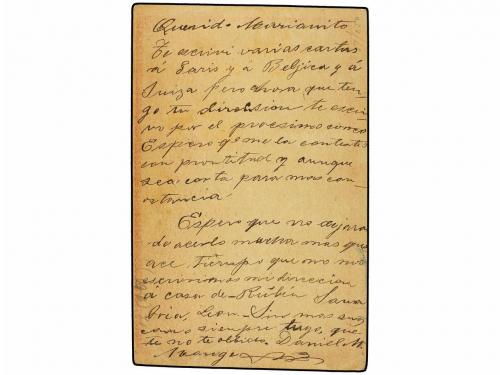 Querido Marianito
Te escrivi varias cartas
á Paris y á Belgica y á
Suiza pero ahora que ten
go tu direhsion te escri
vo por el procsimo correo
Espero q me la contestes
con prontitud y aunque
sea corta para mas con
stancia.
Espero que no dejara
de acerlo mucha mas que
ace tiempo que no nos
escrivimos mi direccion
á casa de Rubén Sana
bria, Leon. Sin mas su
cara siempre tuyo, que
te no te olvida. Daniel M